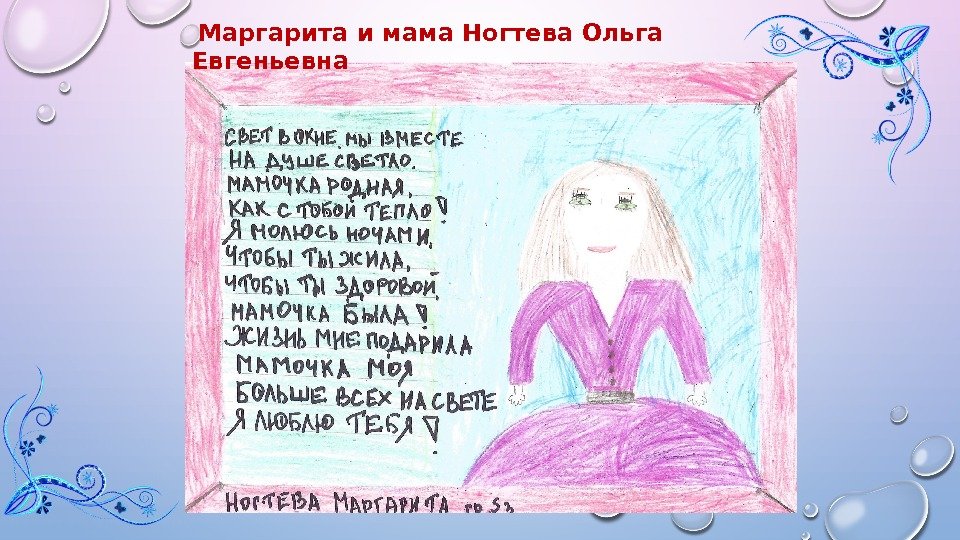 Маргарита и мама Ногтева Ольга
Евгеньевна
СВЕТ В ОКНЕ, МЫ ВМЕСТЕ
НА ДУШЕ СВЕТЛО.
МАМОЧКА РОДНАЯ,
КАК С ТОБОЙ ТЕПЛО!
Я МОЛЮСЬ НОЧАМИ,
ЧТОБЫ ТЫ ЖИЛА,
ЧТОБЫ ТЫ ЗДОРОВОЙ,
МАМОЧКА БЫЛА!
ЖИЗНЬ МНЕ ПОДАРИЛА
МАМОЧКА МОЯ
БОЛЬШЕ ВСЕХ НА СВЕТЕ
Я ЛЮБЛЮ ТЕБЯ!
НОГТЕВА МАРГАРИТА